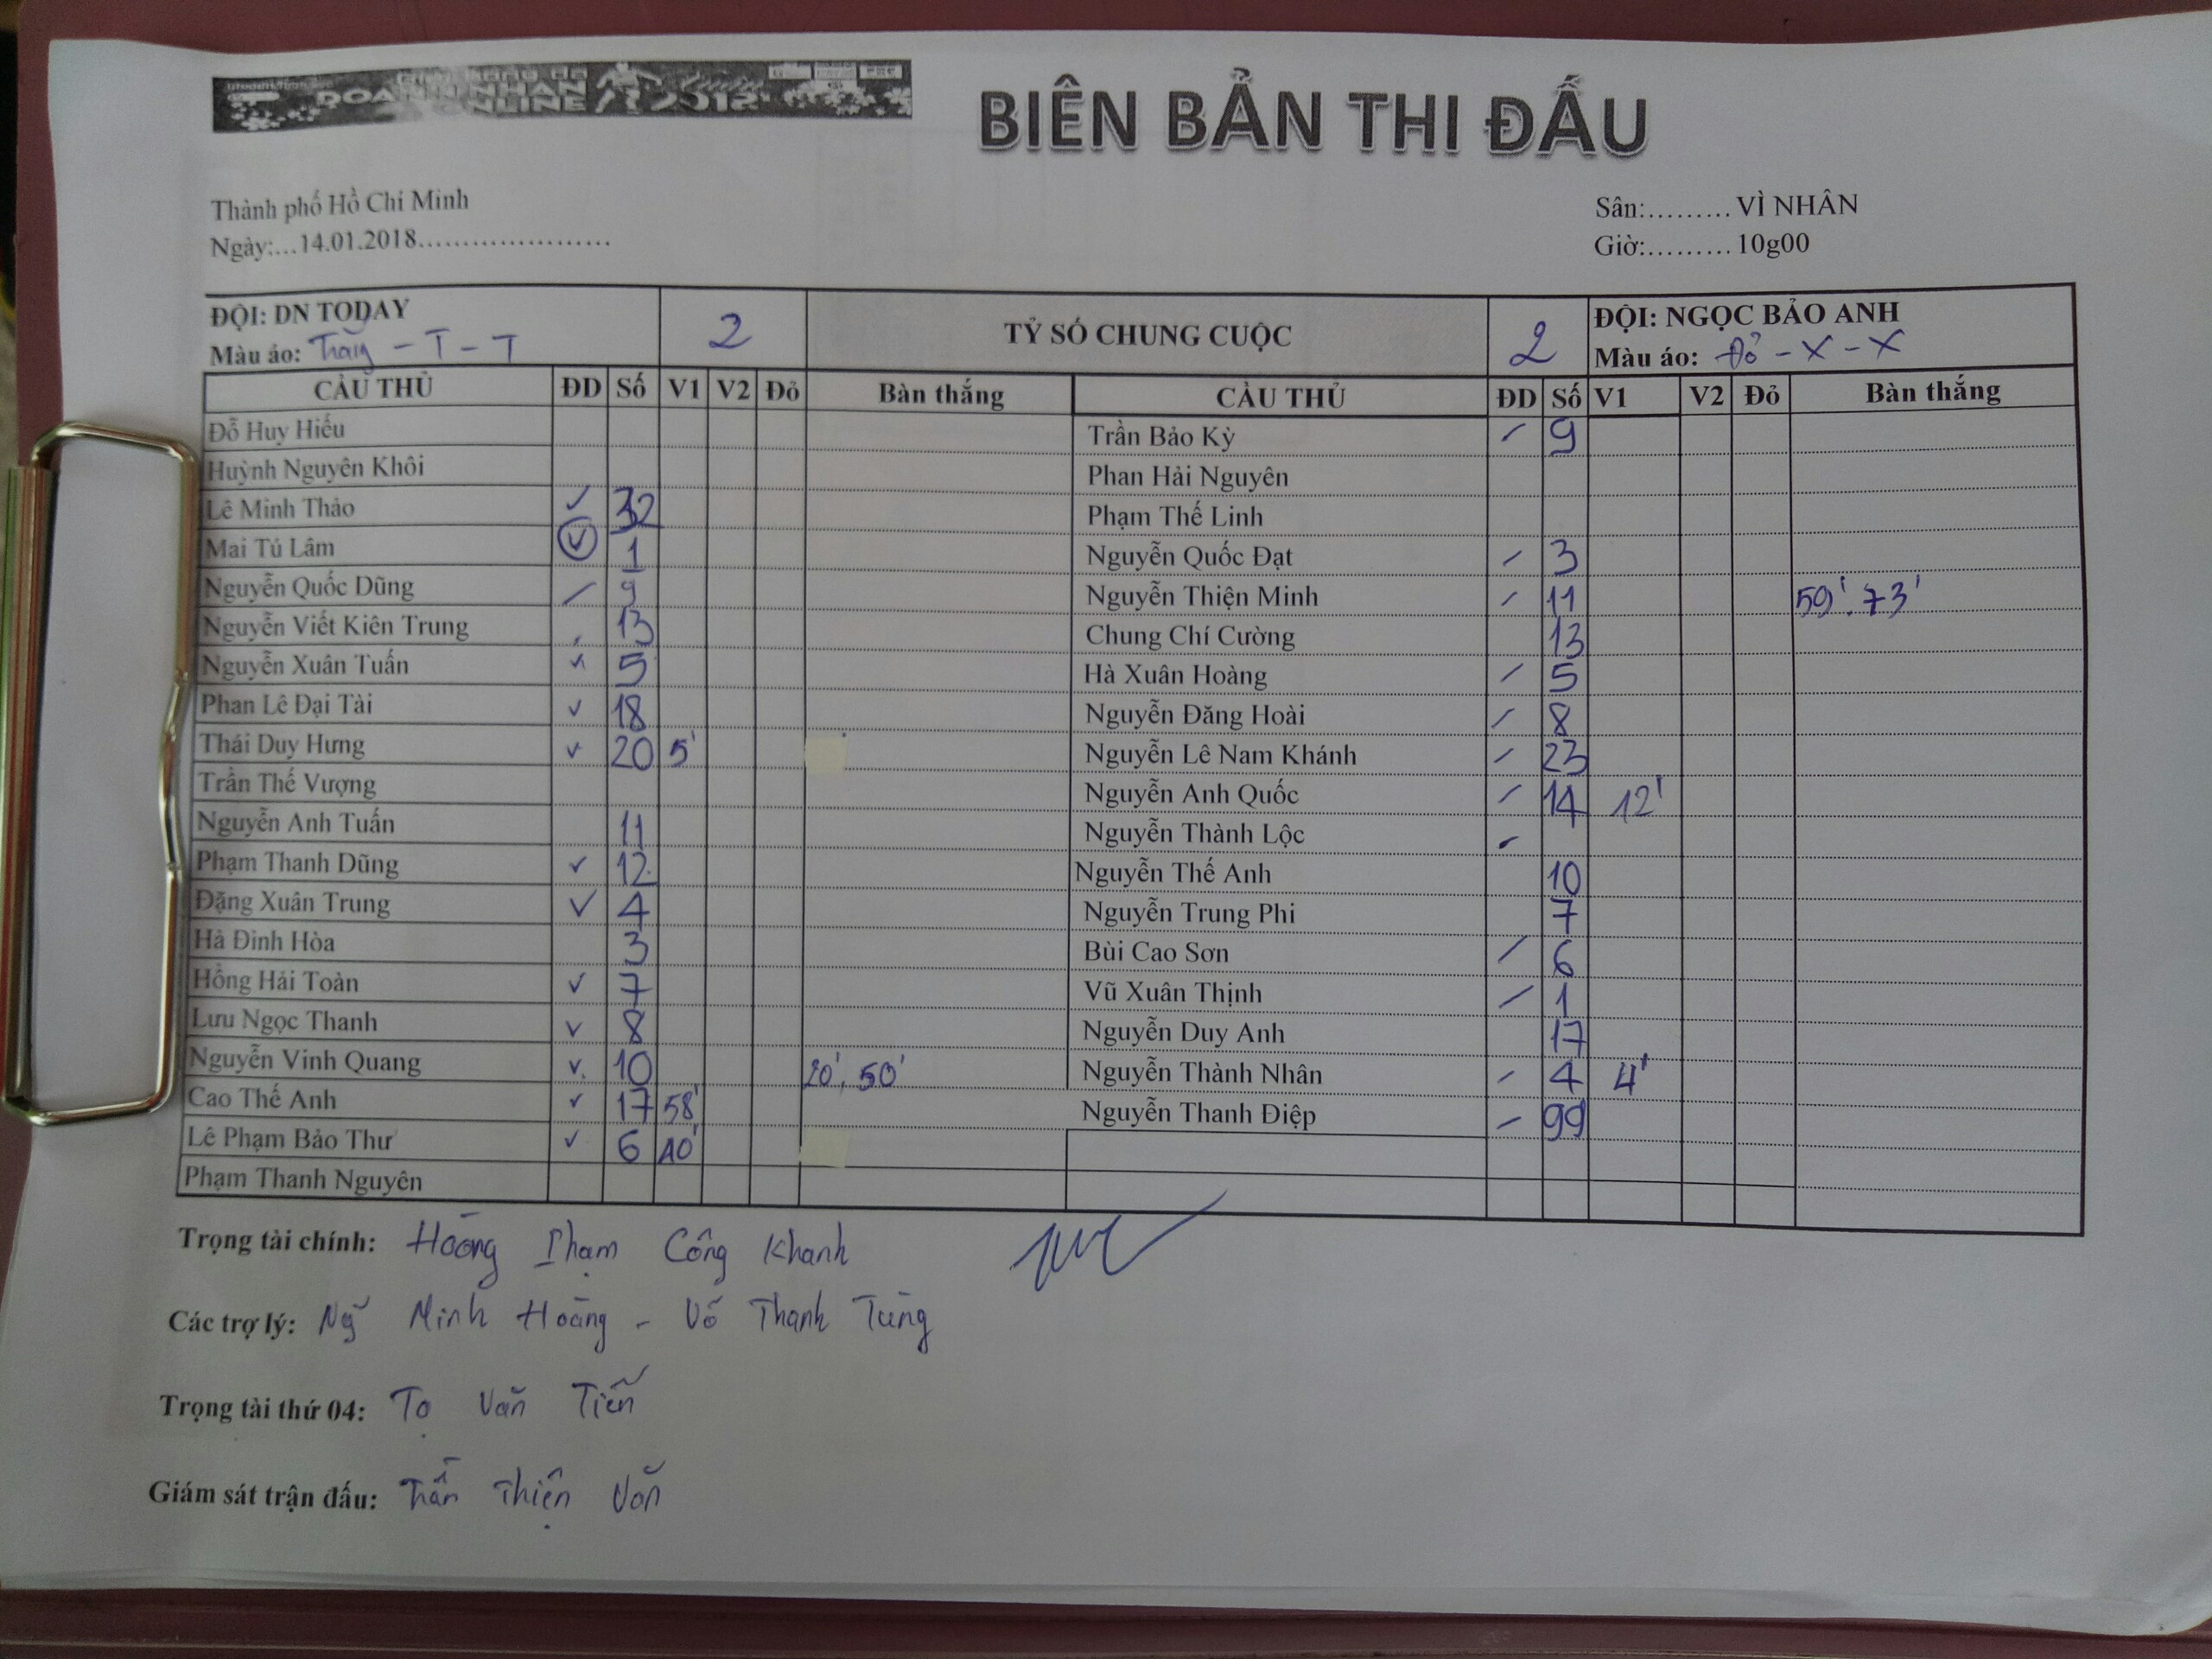 DOANH NHÂN
ONLINE 2012
BIÊN BẢN THI ĐẤU
Thành phố Hồ Chí Minh
Ngày:...14.01.2018......................
Sân:......... VÌ NHÂN
Giờ:......... 10g00
ĐỘI: DN TODAY 2 TỶ SỐ CHUNG CUỘC 2 ĐỘI: NGỌC BẢO ANH
Màu áo: Trắng - T - T Màu áo: Đỏ - X - X
CẦU THỦ ĐD Số V1 V2 Đỏ Bàn thắng CẦU THỦ ĐD Số V1 V2 Đỏ Bàn thắng
Đỗ Huy Hiếu Trần Bảo Kỳ 9
Huỳnh Nguyên Khôi Phan Hải Nguyên
Lê Minh Thảo ✓ 32 Phạm Thế Linh
Mai Tú Lâm ✓ 1 Nguyễn Quốc Đạt 3
Nguyễn Quốc Dũng 9 Nguyễn Thiện Minh 11 59', 73'
Nguyễn Viết Kiên Trung 13 Chung Chí Cường 13
Nguyễn Xuân Tuấn ✓ 5 Hà Xuân Hoàng 5
Phan Lê Đại Tài ✓ 18 Nguyễn Đăng Hoài 8
Thái Duy Hưng ✓ 20 5' Nguyễn Lê Nam Khánh 23
Trần Thế Vượng Nguyễn Anh Quốc 14 12'
Nguyễn Anh Tuấn 11 Nguyễn Thành Lộc
Phạm Thanh Dũng ✓ 12 Nguyễn Thế Anh 10
Đặng Xuân Trung ✓ 4 Nguyễn Trung Phi 7
Hà Đình Hòa 3 Bùi Cao Sơn 6
Hồng Hải Toàn ✓ 7 Vũ Xuân Thịnh 1
Lưu Ngọc Thanh ✓ 8 Nguyễn Duy Anh 17
Nguyễn Vinh Quang ✓ 10 20', 50' Nguyễn Thành Nhân 4 4'
Cao Thế Anh ✓ 17 58' Nguyễn Thanh Điệp 99
Lê Phạm Bảo Thư ✓ 6 40'
Phạm Thanh Nguyên
Trọng tài chính: Hoàng Phạm Công Khanh
Các trợ lý: Ng̃ Minh Hoàng - Võ Thanh Tùng
Trọng tài thứ 04: Tạ Văn Tiến
Giám sát trận đấu: Trần Thiện Văn